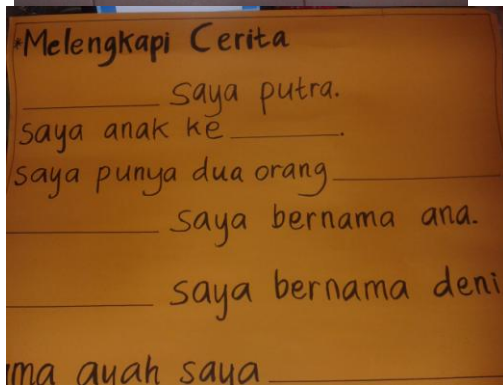 *Melengkapi Cerita
__________ saya putra.
saya anak ke ________.
saya punya dua orang ____________
___________ saya bernama ana.
___________ saya bernama deni
ma ayah saya ________________